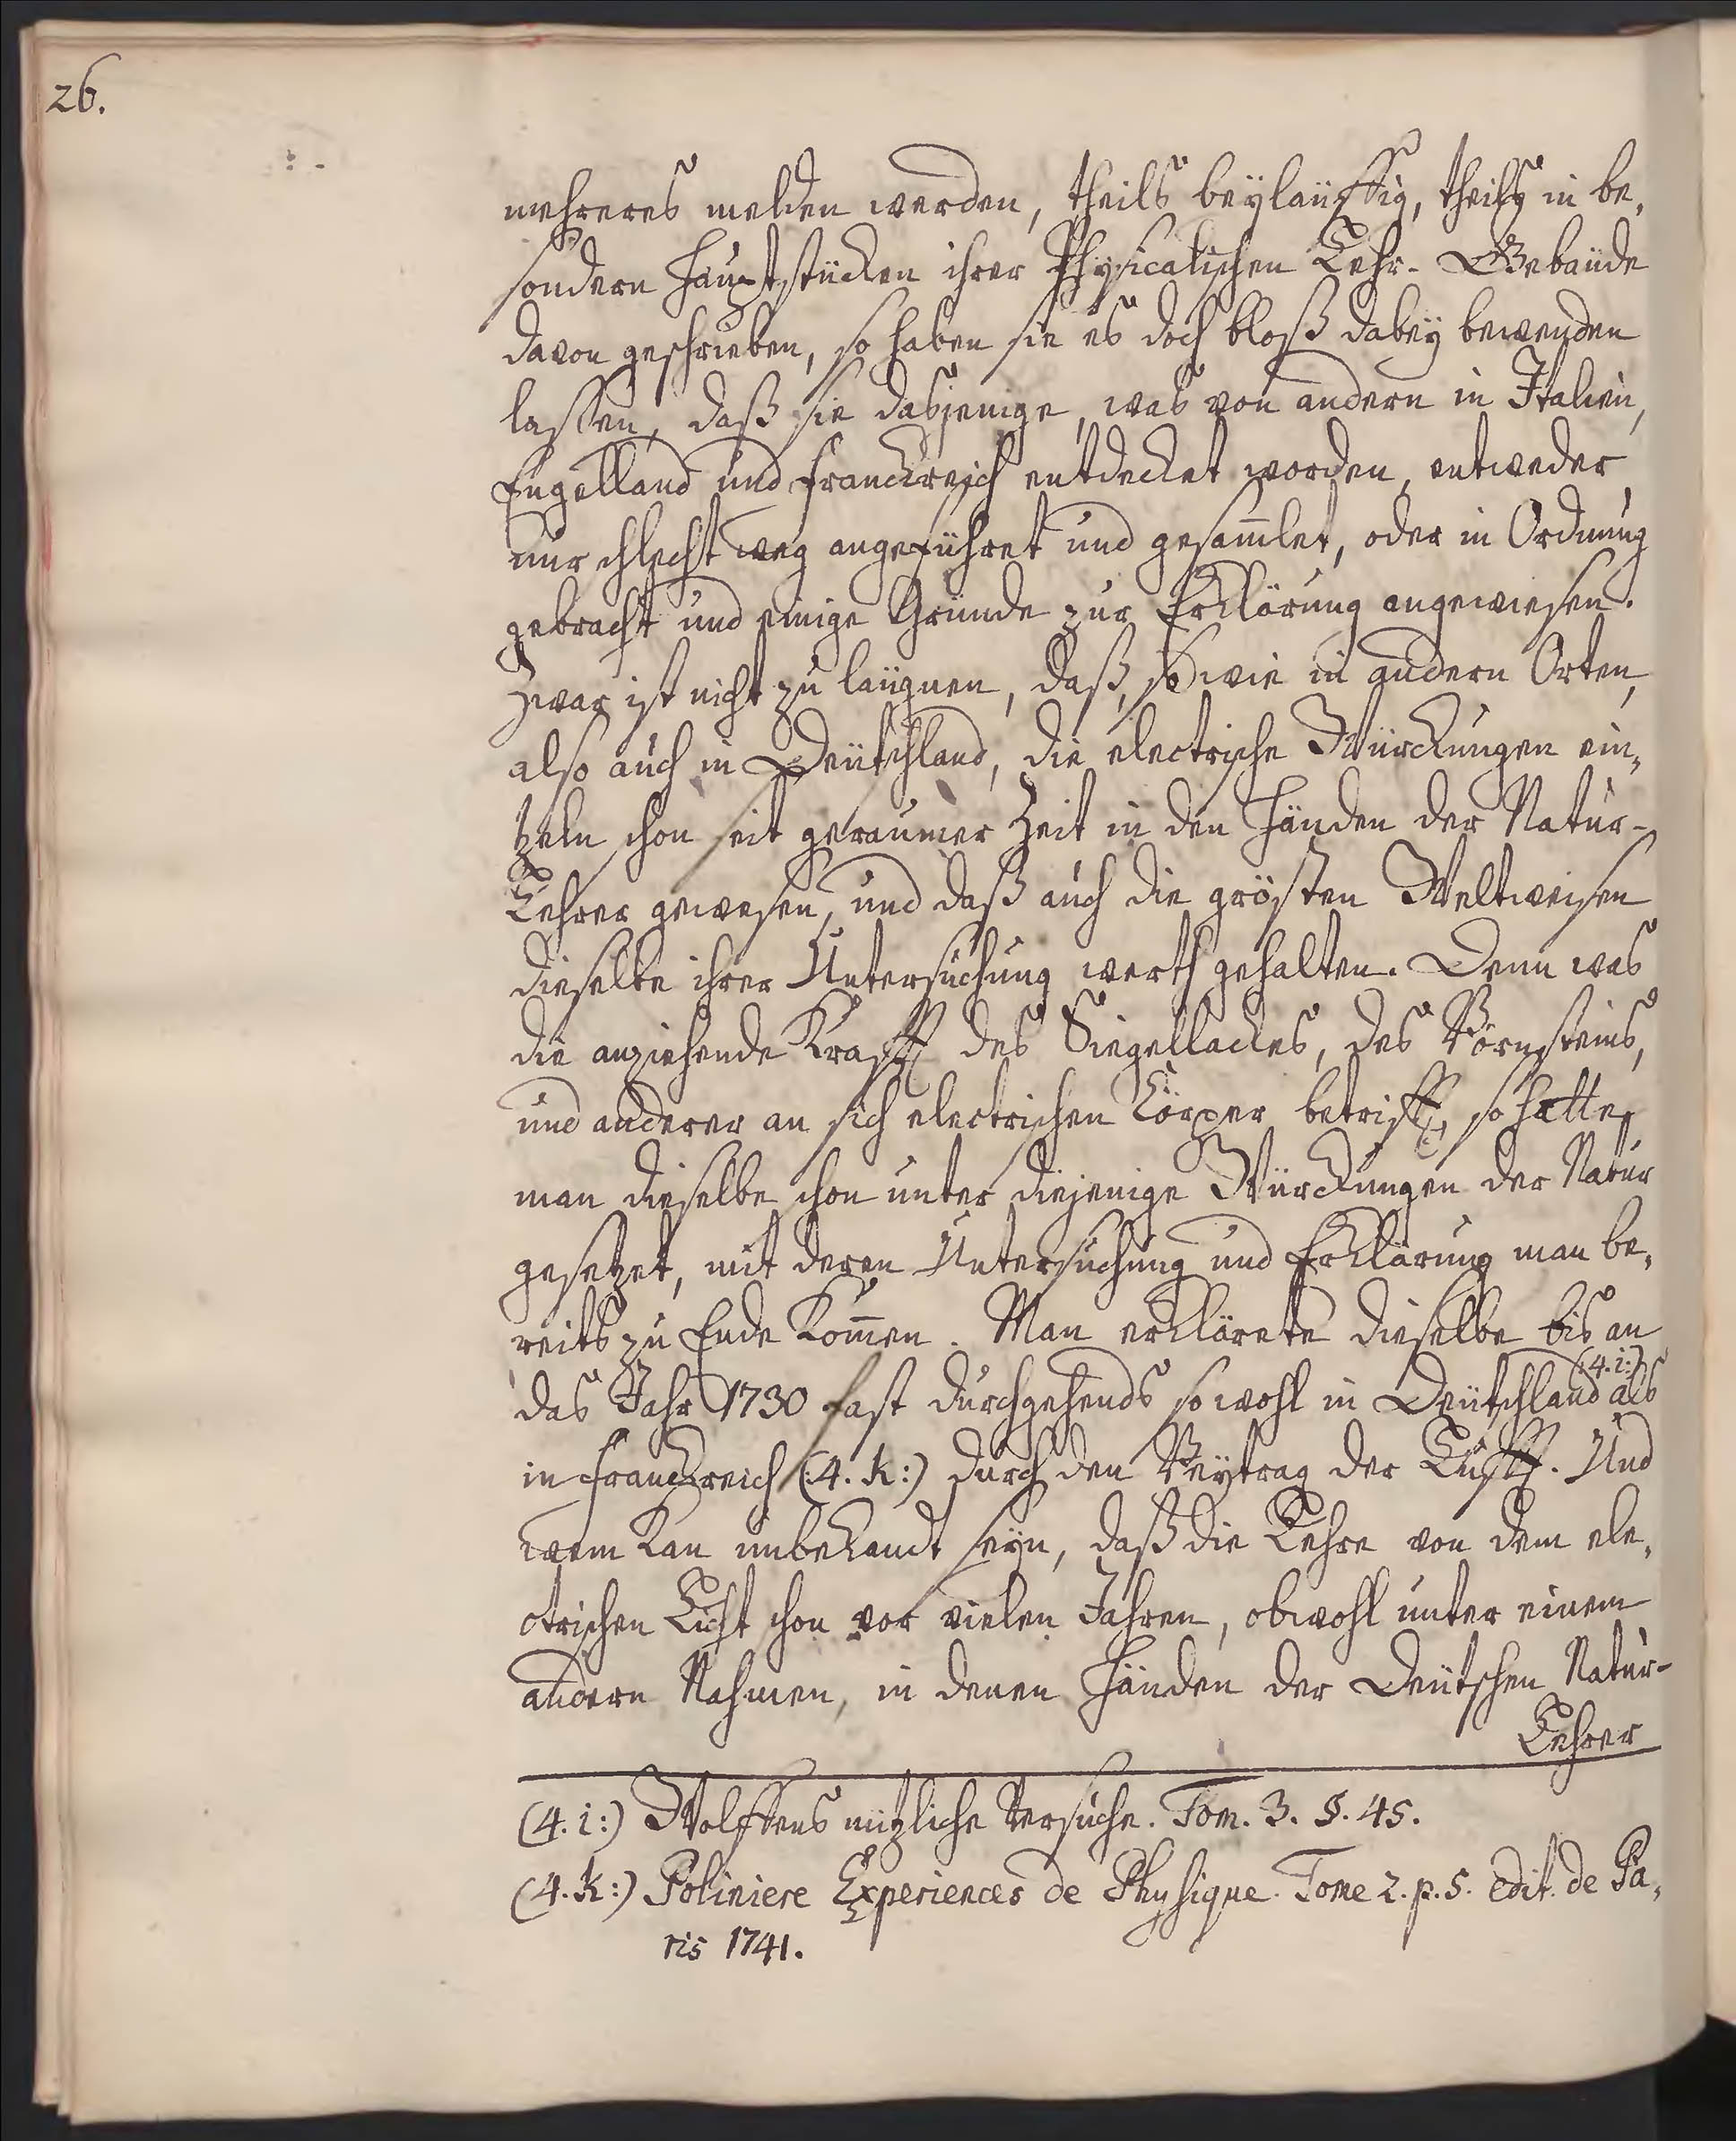 26.
mehreres melden werden, theils beyläuffig, theils in be,
sondern Hauptstücken ihrer Physicalischen Lehr-Gebäude
davon geschrieben, so haben sie es doch bloß dabey bewenden
lassen, daß sie dasjenige, was von andern in Italien,
Engelland und Franckreich entdecket worden, entweder
nur schlecht weg angeführet und gesam̄let, oder in Ordnung
gebracht und einige Gründe zur Erklärung angewiesen.
Zwar ist nicht zu läugnen, daß, so wie in andern Orten,
also auch in Deütschland, die electrische Würckungen ein,
tzeln schon seit geraumer Zeit in den Händen der Natur-
Lehrer gewesen, und daß auch die grösten Weltweisen
dieselbe ihrer Untersuchung werth gehalten. Denn was
die anziehende Krafft des Siegellackes, des Börnsteins,
und anderer an sich electrischen Cörper betrifft, so hatte
man dieselbe schon unter diejenige Würckungen der Natur
gesetzet, mit deren Untersuchung und Erklärung man be,
reits zu Ende kom̄en. Man erklärete dieselbe bis an
das Jahr 1730 fast durchgehends so wohl in Deütschland (4. i:) als
in Franckreich (:4. k:) durch den Beytrag der Lufft. Und
wem kan unbekandt seyn, daß die Lehre von dem ele,
ctrischen Licht schon vor vielen Jahren, obwohl unter einem
andern Nahmen, in denen Händen der Deütschen Natur-
Lehrer
(4. i:) Wolffens nützliche Versuche. Tom. 3. §. 45.
(4. k:) Poliniere Experiences de Physique. Tome 2. p. 5. edit. de Pa,
ris 1741.